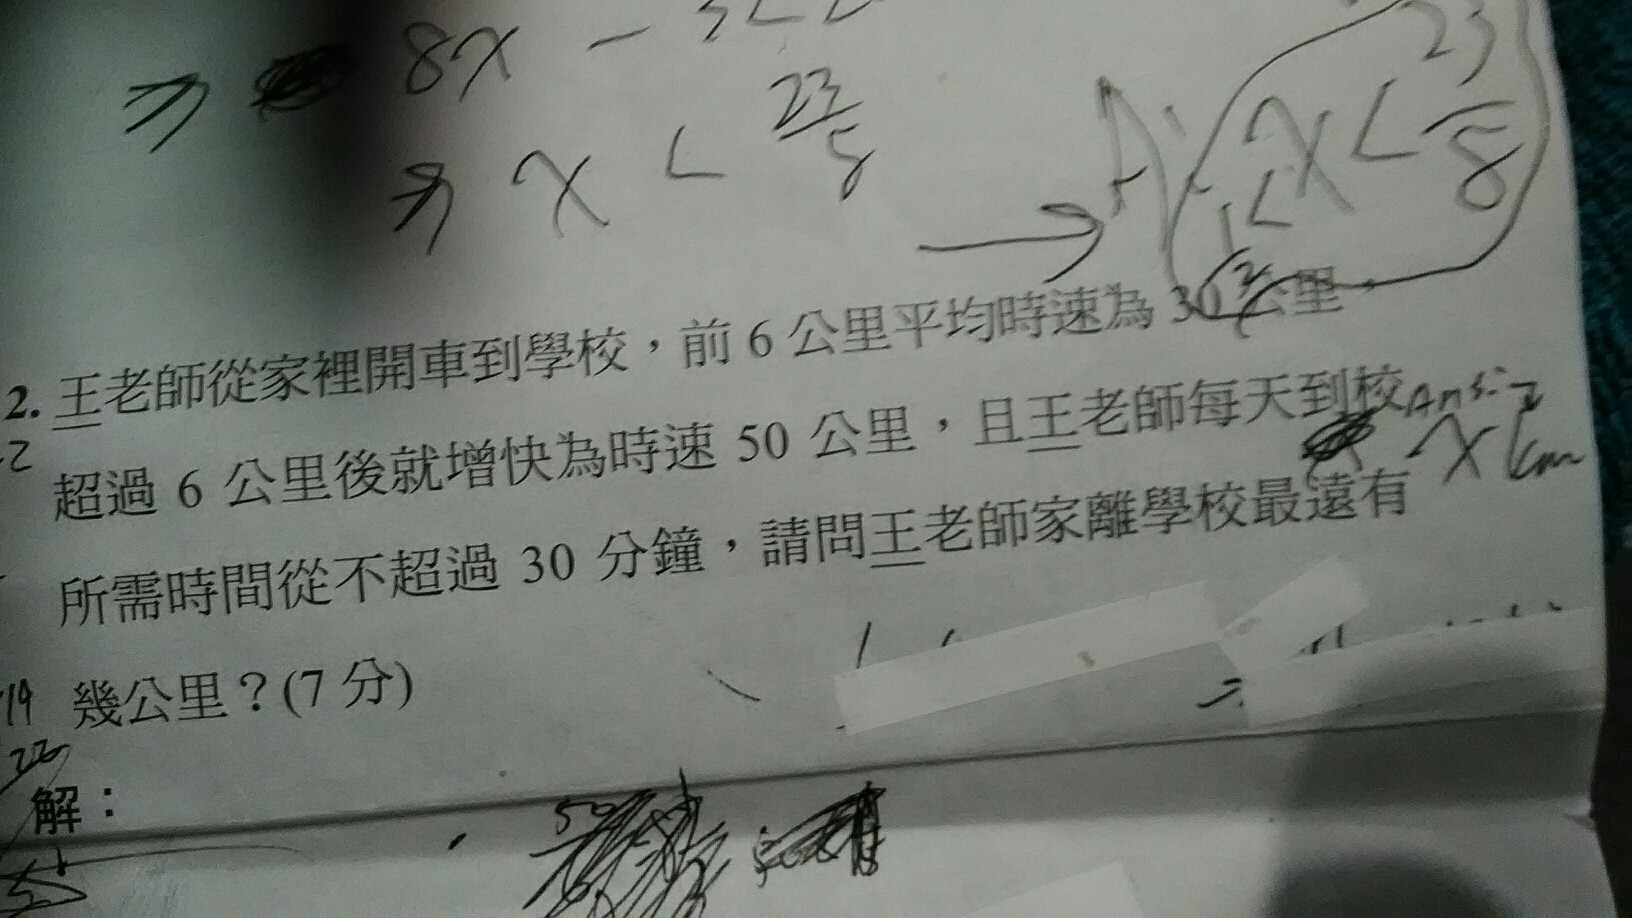 ⇒ 8x -
⇒ x < 23/8
→ A: 1/2 < x < 23/8
2. 王老師從家裡開車到學校，前 6 公里平均時速為 30 公里，
超過 6 公里後就增快為時速 50 公里，且王老師每天到校
x km
所需時間從不超過 30 分鐘，請問王老師家離學校最遠有
幾公里？(7 分)
解：